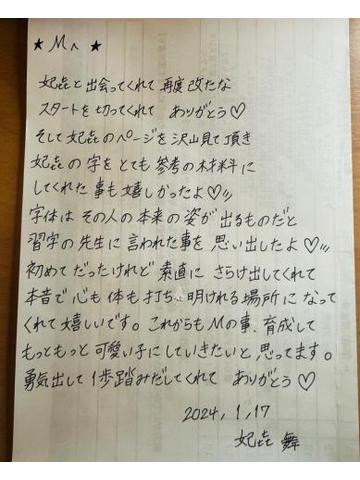 ★ Mへ ★
妃㐂と出会ってくれて 再度 改たな
スタートを 切ってくれて ありがとう♡
そして 妃㐂の ページを 沢山 見て 頂き
妃㐂の 字を とても 参考の 材料に
してくれた 事も 嬉しかったよ♡
字体は その人の 本来の 姿が 出るものだと
習字の 先生に 言われた事を 思い出したよ♡
初めて だったけれど 素直に さらけ出してくれて
本音で 心も 体も 打ち明けれる 場所に なって
くれて 嬉しいです。これからも Mの事、育成して
もっともっと 可愛い子に していきたいと 思ってます。
勇気出して 1歩 踏みだしてくれて ありがとう♡
2024, 1, 17
妃㐂 舞